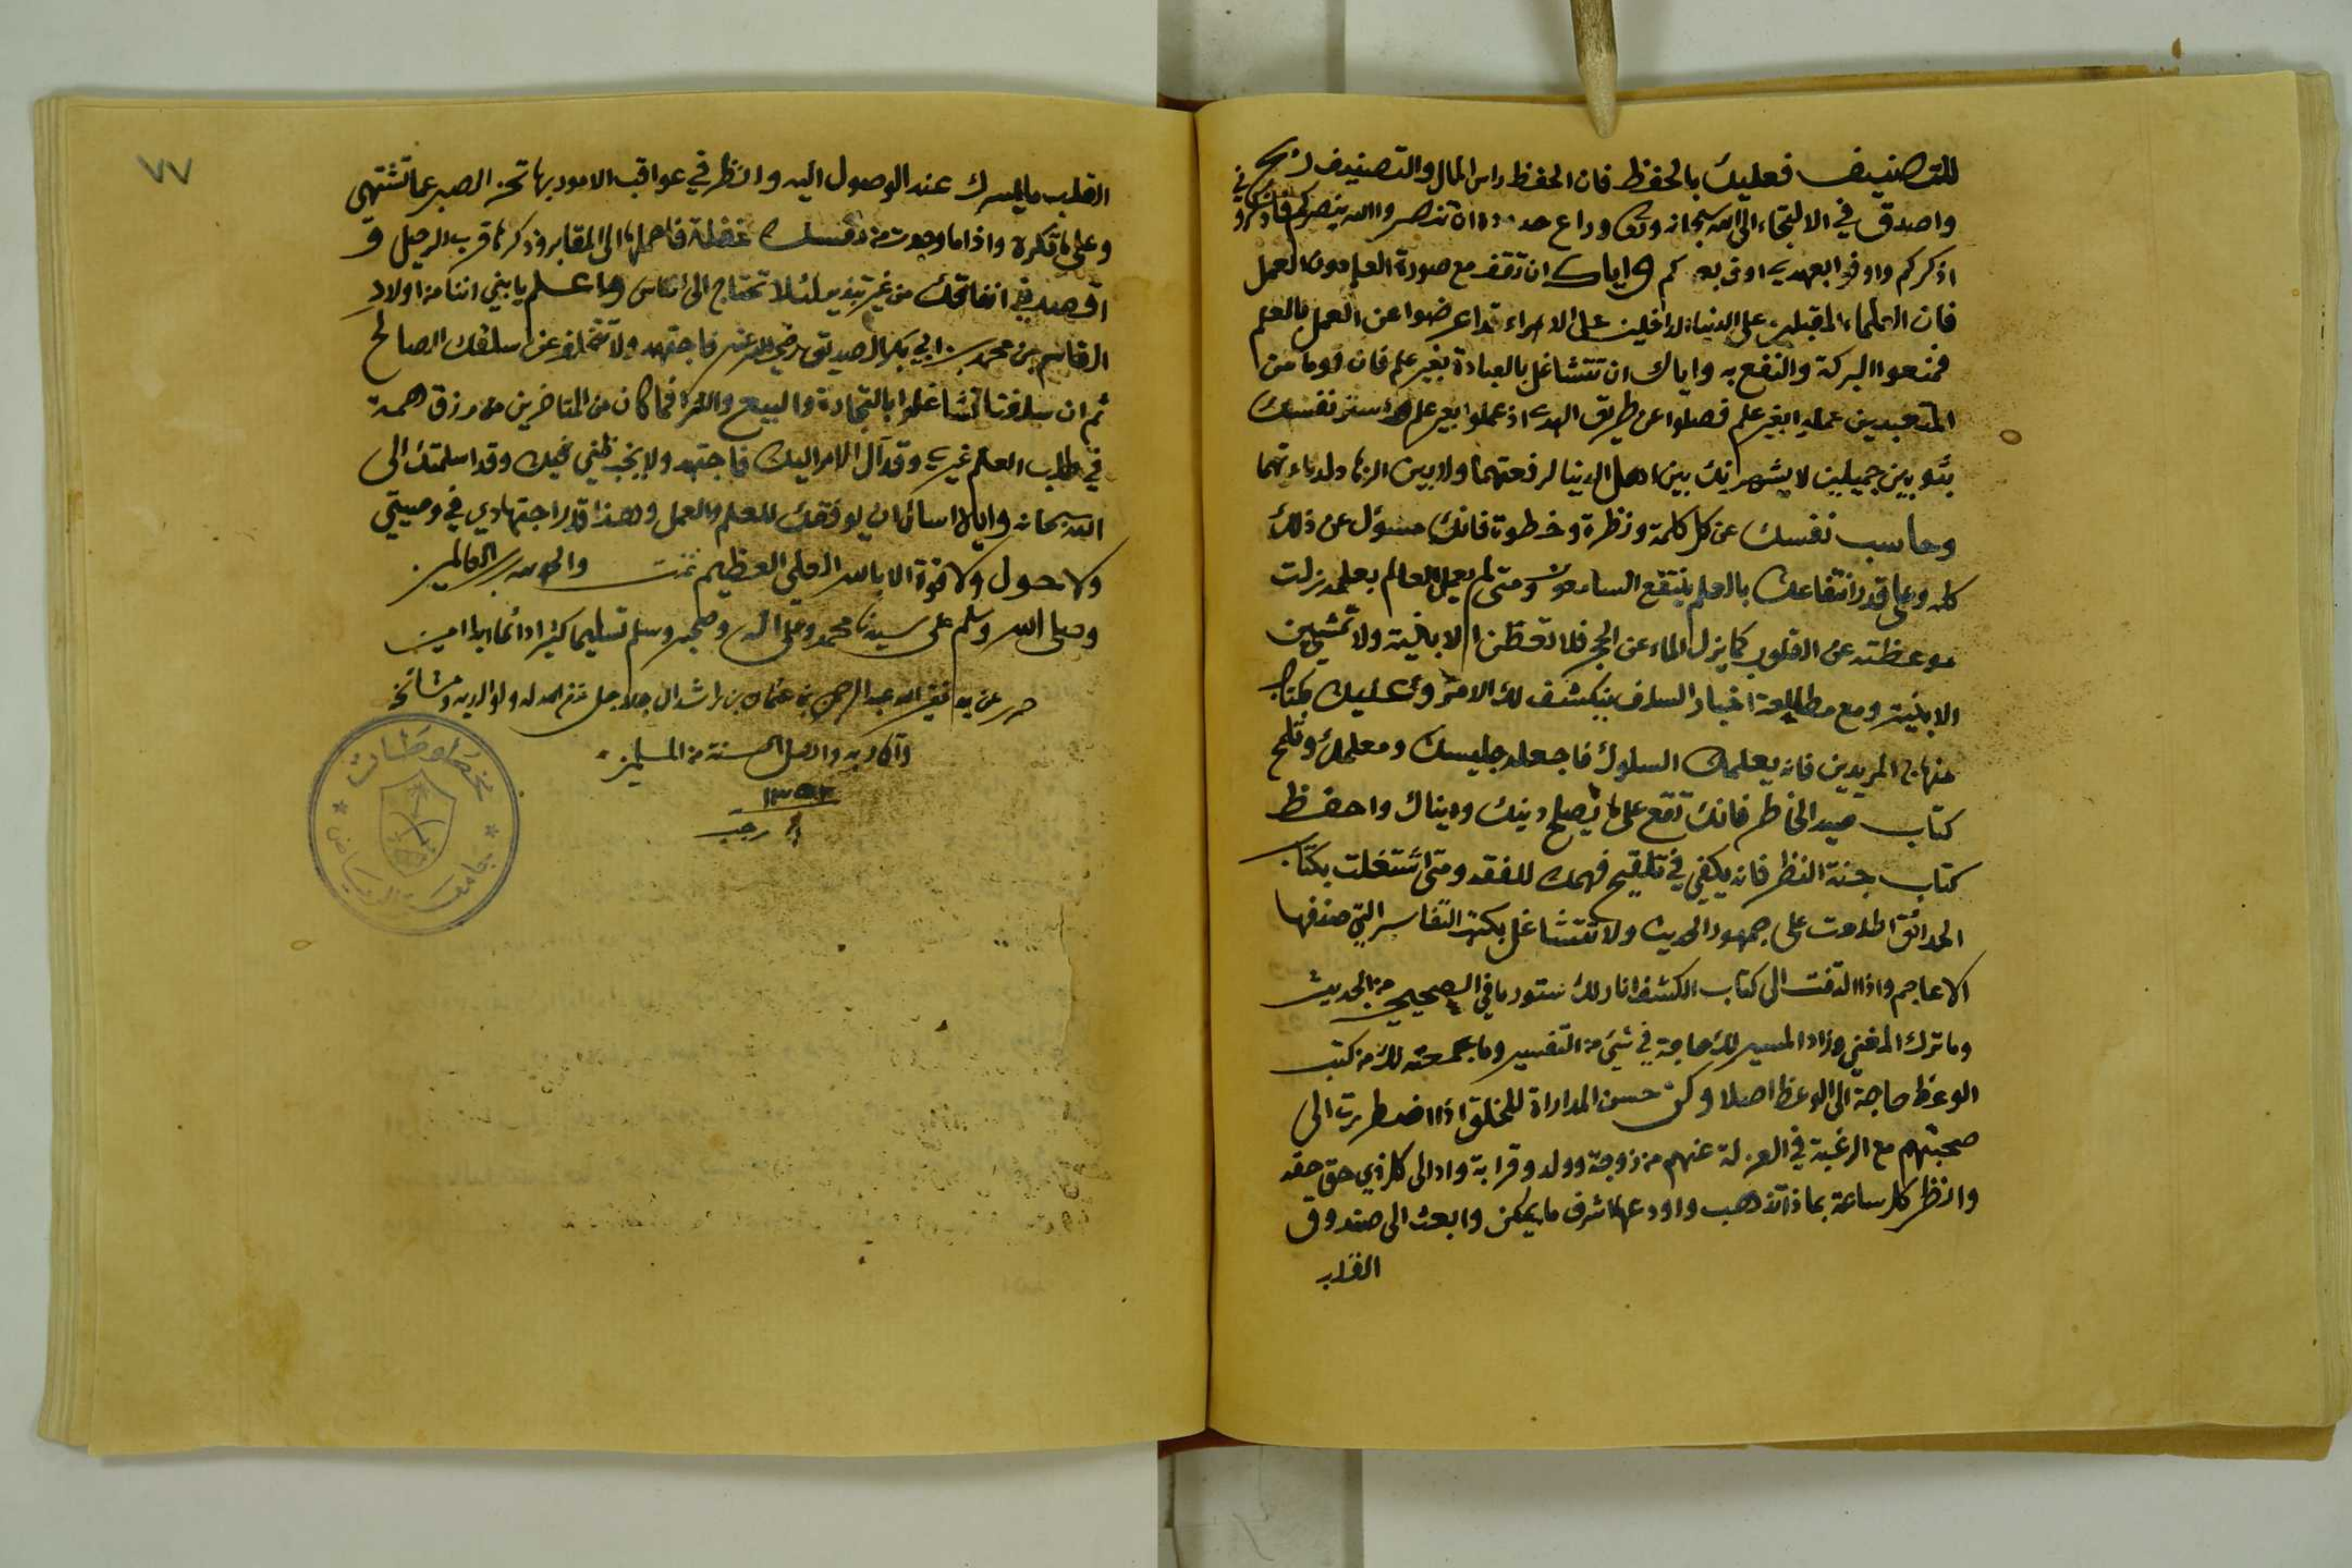 للتصنيف فعليك بالحفظ فان الحفظ راس المال والتصنيف ربح
واصدق في الالتجاء الى الله سبحانه وراع حدوده ان تنصروا الله ينصركم فاذكروني
اذكركم واوفوا بعهدي اوف بعهدكم واياك ان تقف مع صورة العلم دون العمل
فان العلماء المقبلين على الدنيا الداخلين على الامراء قد اعرضوا عن العمل بالعلم
فمنعوا البركة والنفع به واياك ان تتشاغل بالعبادة بغير علم فان قوما من
المتعبدين بغير علم فضلوا عن طريق الهدى اذ عملوا بغير علم واستر نفسك
بثوبين جميلين لا يشهرانك بين اهل الدنيا لرفعتهما ولا بين الزهاد
وحاسب نفسك عن كل كلمة ونظرة وخطوة فانك مسؤل عن ذلك
كله وعلى قدر انتفاعك بالعلم ينتفع السامعون ومتى لم يعمل العالم بعلمه زلت
موعظته عن القلوب كما يزل الماء عن الحجر فلا تعظن الا بنية ولا تمشين
الا بنية ومع مطالعة اخبار السلف ينكشف لك الامر وعليك بكتاب
منهاج المريدين فانه يعلمك السلوك فاجعله جليسك ومعلمك وتلمح
كتاب صيد الخاطر فانك تقع على ما يصلح دينك ودنياك واحفظ
كتاب جنة النظر فانه يكفي في تلقيح فهمك للفقه ومتى اشتغلت بكتاب
الحدائق اطلعت على جمهور الحديث ولا تتشاغل بكتب التفاسير التي صنفها
الاعاجم واذا التفت الى كتاب الكشف انار لك ستور ما في الصحيح من الحديث
وما ترك المغني وزاد المسير لك حاجة في شيء من التفسير وما جمعته لك من كتب
الوعظ حاجة الى الوعظ اصلا وكن حسن المداراة للخلق اذا اضطررت الى
صحبتهم مع الرغبة في العزلة عنهم من زوجة وولد وقرابة واد الى كل ذي حق حقه
وانظر كل ساعة بماذا تذهب واودعها اشرف ما يمكن وابعث الى صندوق
القبر
٧٧
القلب ما يسرك عند الوصول اليه وانظر في عواقب الامور بها تحز الصبر عما تشتهي
وعلى ما تكره واذا ما وجدت من نفسك غفلة فاحملها الى المقابر وذكرها قرب الرحيل و
اقصد في انفاقك من غير تبذير لئلا تحتاج الى الناس واعلم يا بني اننا من اولاد
القاسم بن محمد بن ابي بكر الصديق رضي الله عنه فاجتهد ولا تتخلف عن سلفك الصالح
ثم ان سلفنا تشاغلوا بالتجارة والبيع والشرا فما كان من المتاخرين من رزق همة
في طلب العلم غيري وقد آل الامر اليك فاجتهد ولا يخب ظني فيك وقد اسلمتك الى
الله سبحانه واياه اسال ان يوفقك للعلم والعمل وهذا قدر اجتهادي في وصيتي
ولا حول ولا قوة الا بالله العلي العظيم تمت والحمد لله رب العالمين
وصلى الله وسلم على سيدنا محمد وعلى آله وصحبه وسلم تسليما كثيرا دائما ابدا امين
حرر عن يد فقير الله عبد الرحمن بن عثمان بن راشد ال جلاجل غفر الله له ولوالديه ومشائخه
واقاربه والمسلمين
١٣٥٣
رجب
مخطوطات
جامعة الرياض